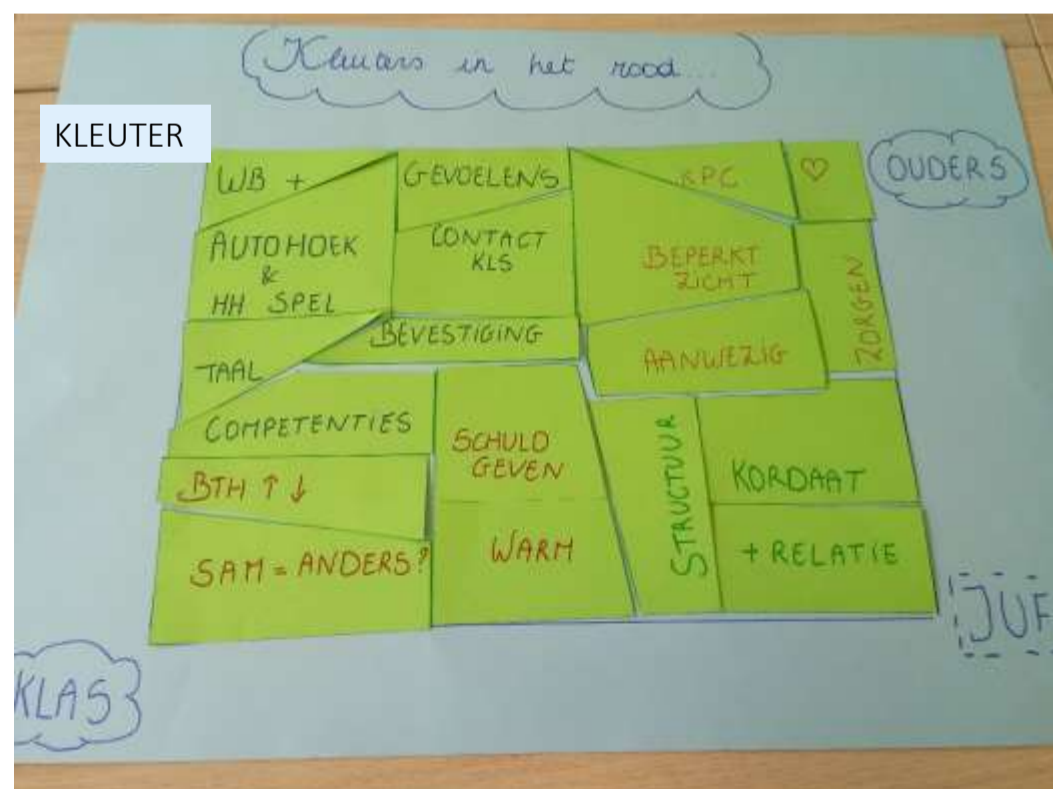 Kleuters in het rood...
KLEUTER
OUDERS
WB +
GEVOELENS
KPC
♡
AUTOHOEK
&
HH SPEL
CONTACT
KLS
BEPERKT
ZICHT
ZORGEN
TAAL
BEVESTIGING
AANWEZIG
COMPETENTIES
SCHULD
GEVEN
STRUCTUUR
KORDAAT
BTH ↑ ↓
SAM = ANDERS?
WARM
+ RELATIE
JUF
KLAS